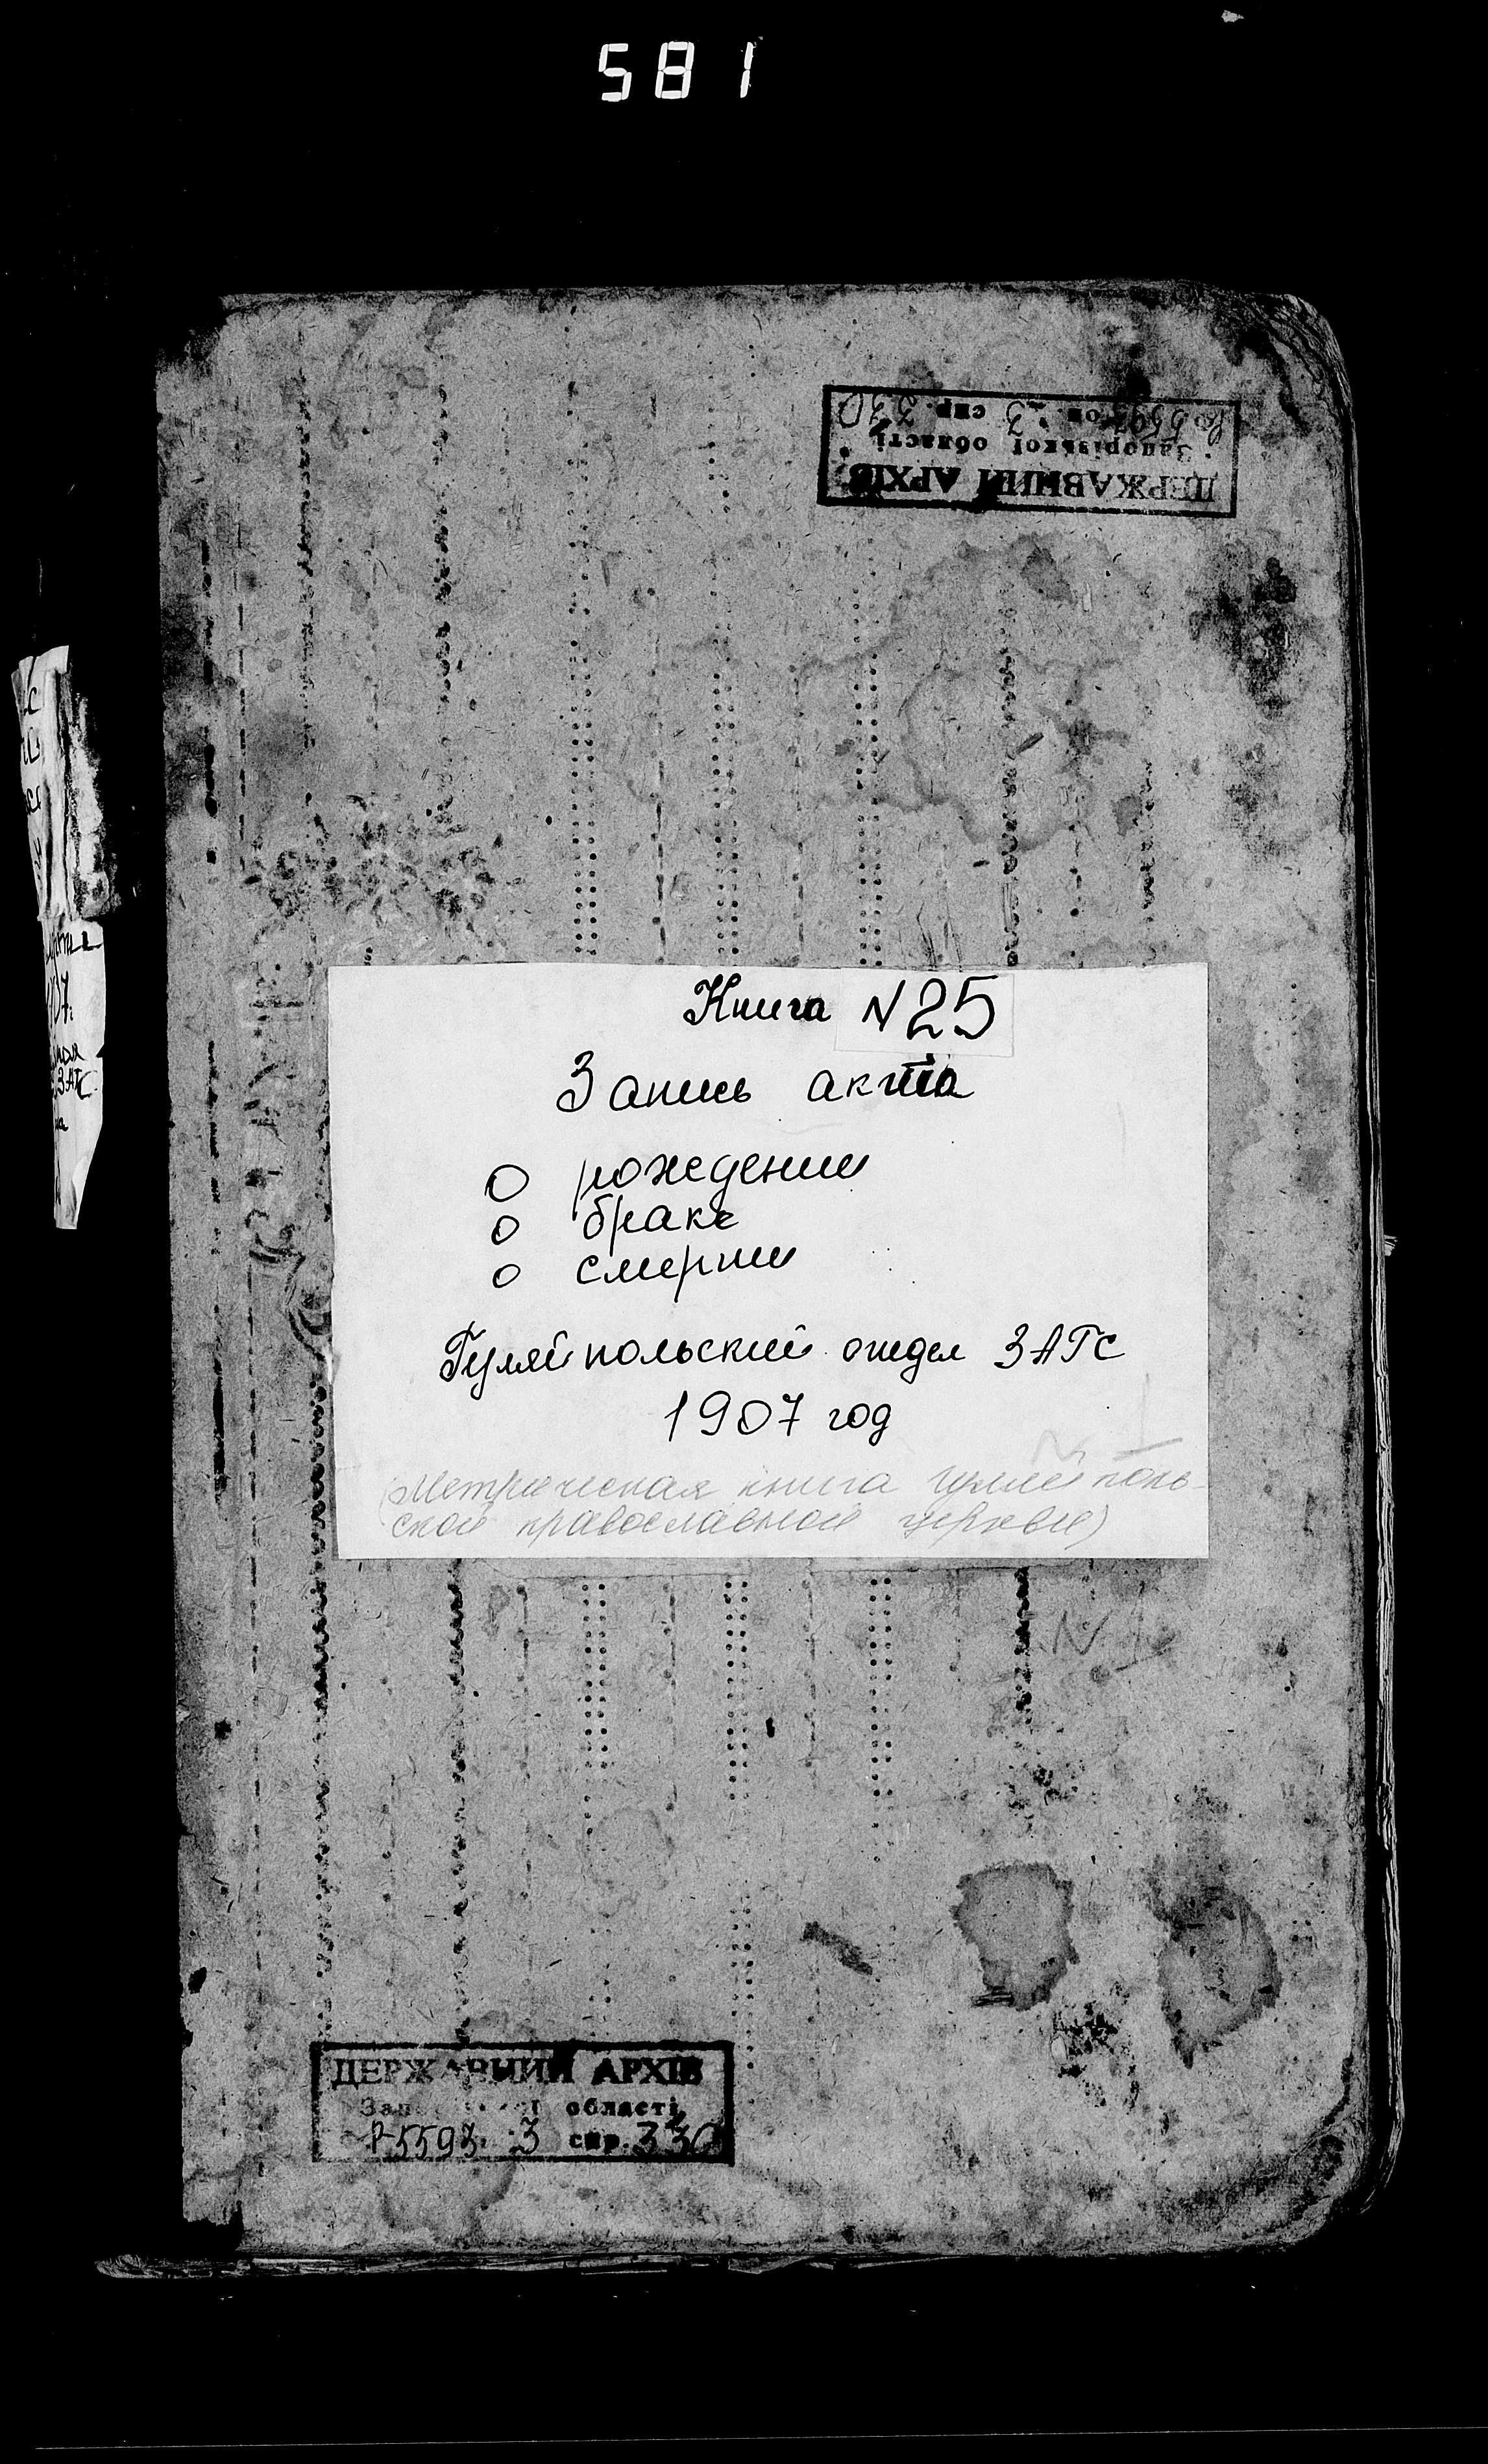 581
ДЕРЖАВНИЙ АРХІВ
Запорізької області
оп. 3 спр. 330
Книга N 25
Запись акта
о рождении
о браке
о смерти
Гуляйпольский отдел ЗАГС
1907 год
N 1
(Метрическая книга Гуляйполь-
ской православной церкви)
N 1
ДЕРЖАВНИЙ АРХІВ
області
Р-5593 3 спр. 330